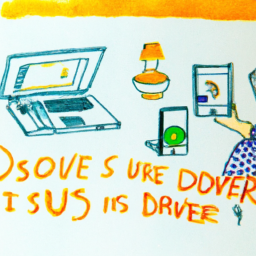 DSOVE S URE DOVER
ISUS IIS DRVEE